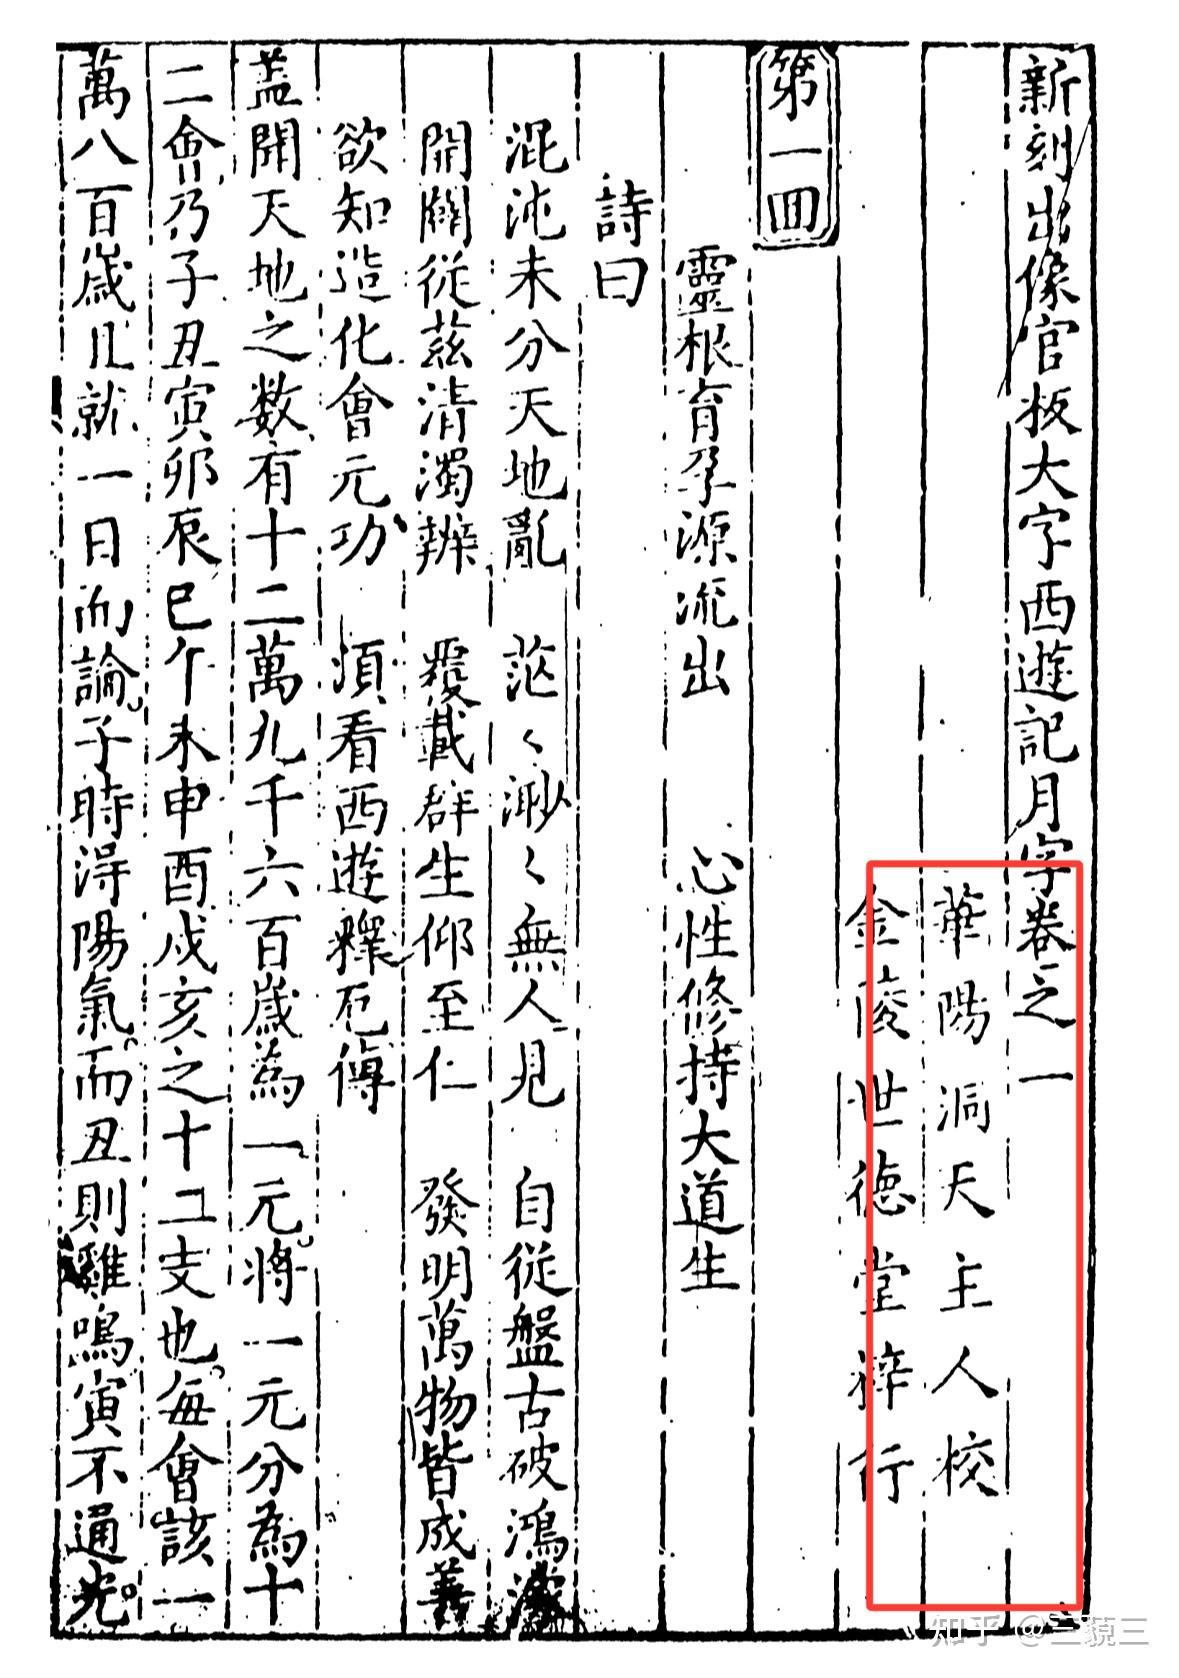 新刻出像官板大字西遊記月字卷之一
華陽洞天主人校
金陵世德堂梓行
第一回
靈根育孕源流出　心性修持大道生
詩曰
混沌未分天地亂　茫〻渺〻無人見　自從盤古破鴻濛
開闢從茲清濁辨　覆載群生仰至仁　發明萬物皆成善
欲知造化會元功　須看西遊釋厄傳
盖開天地之数有十二萬九千六百歲為一元將一元分為十
二會乃子丑寅卯辰巳午未申酉戌亥之十二支也每會該一
萬八百歲且就一日而論子時得陽氣而丑則雞鳴寅不通光
知乎 @三藐三